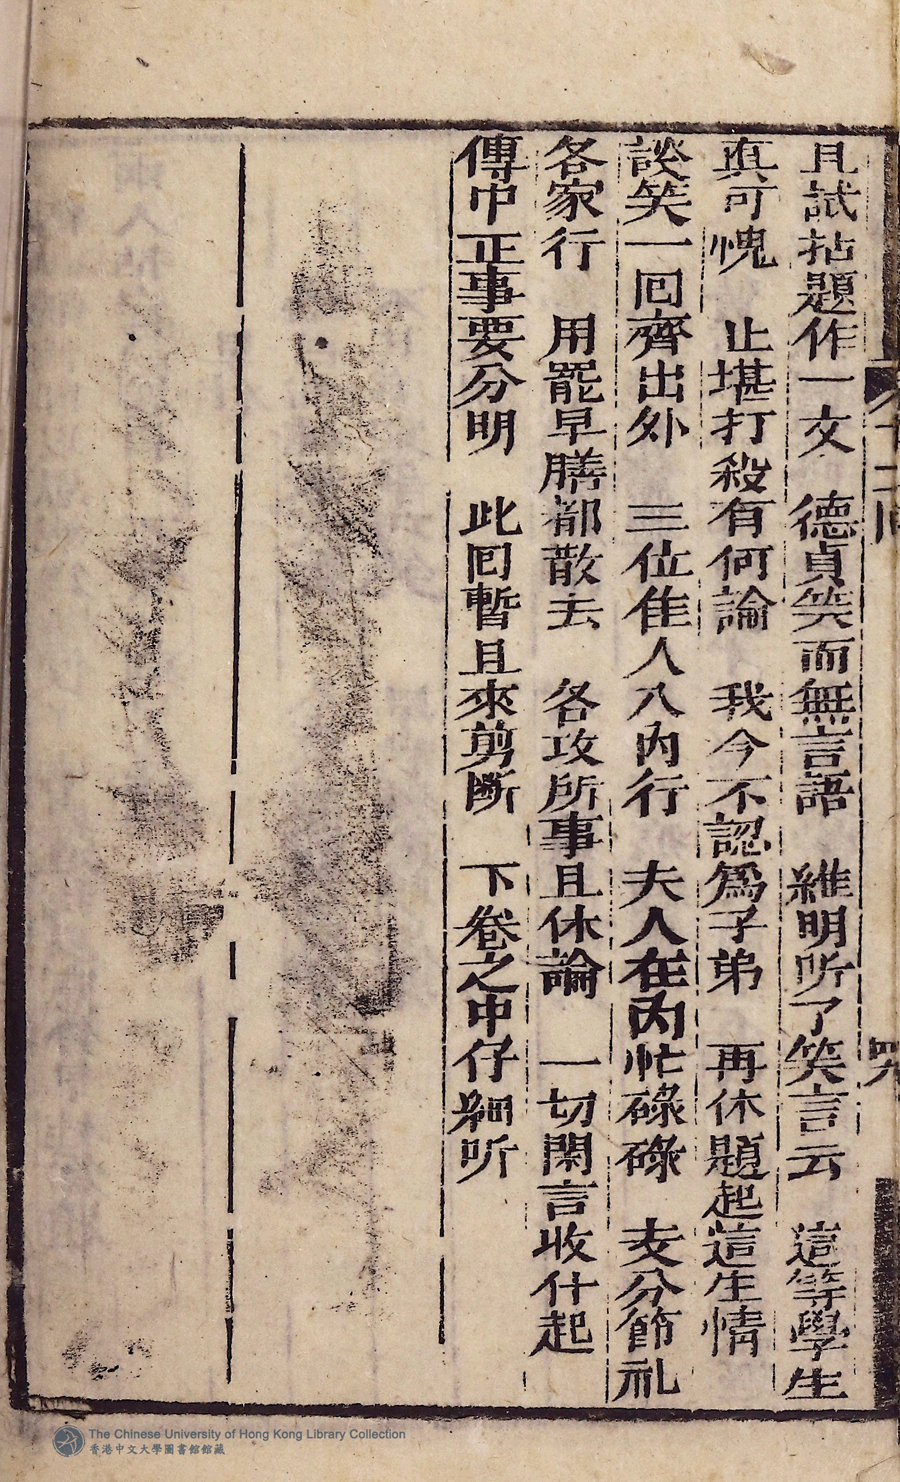 且試拈題作一文　德貞笑而無言語　維明听了笑言云　這等學生
真可愧　止堪打殺有何論　我今不認爲子弟　再休題起這生情
談笑一回齊出外　三位佳人入內行　夫人在內忙碌碌　支分節礼
各家行　用罷早膳都散去　各攻所事且休論　一切閑言收什起
傳中正事要分明　此回暫且來剪斷　下卷之中仔細听
The Chinese University of Hong Kong Library Collection
香港中文大學圖書館館藏